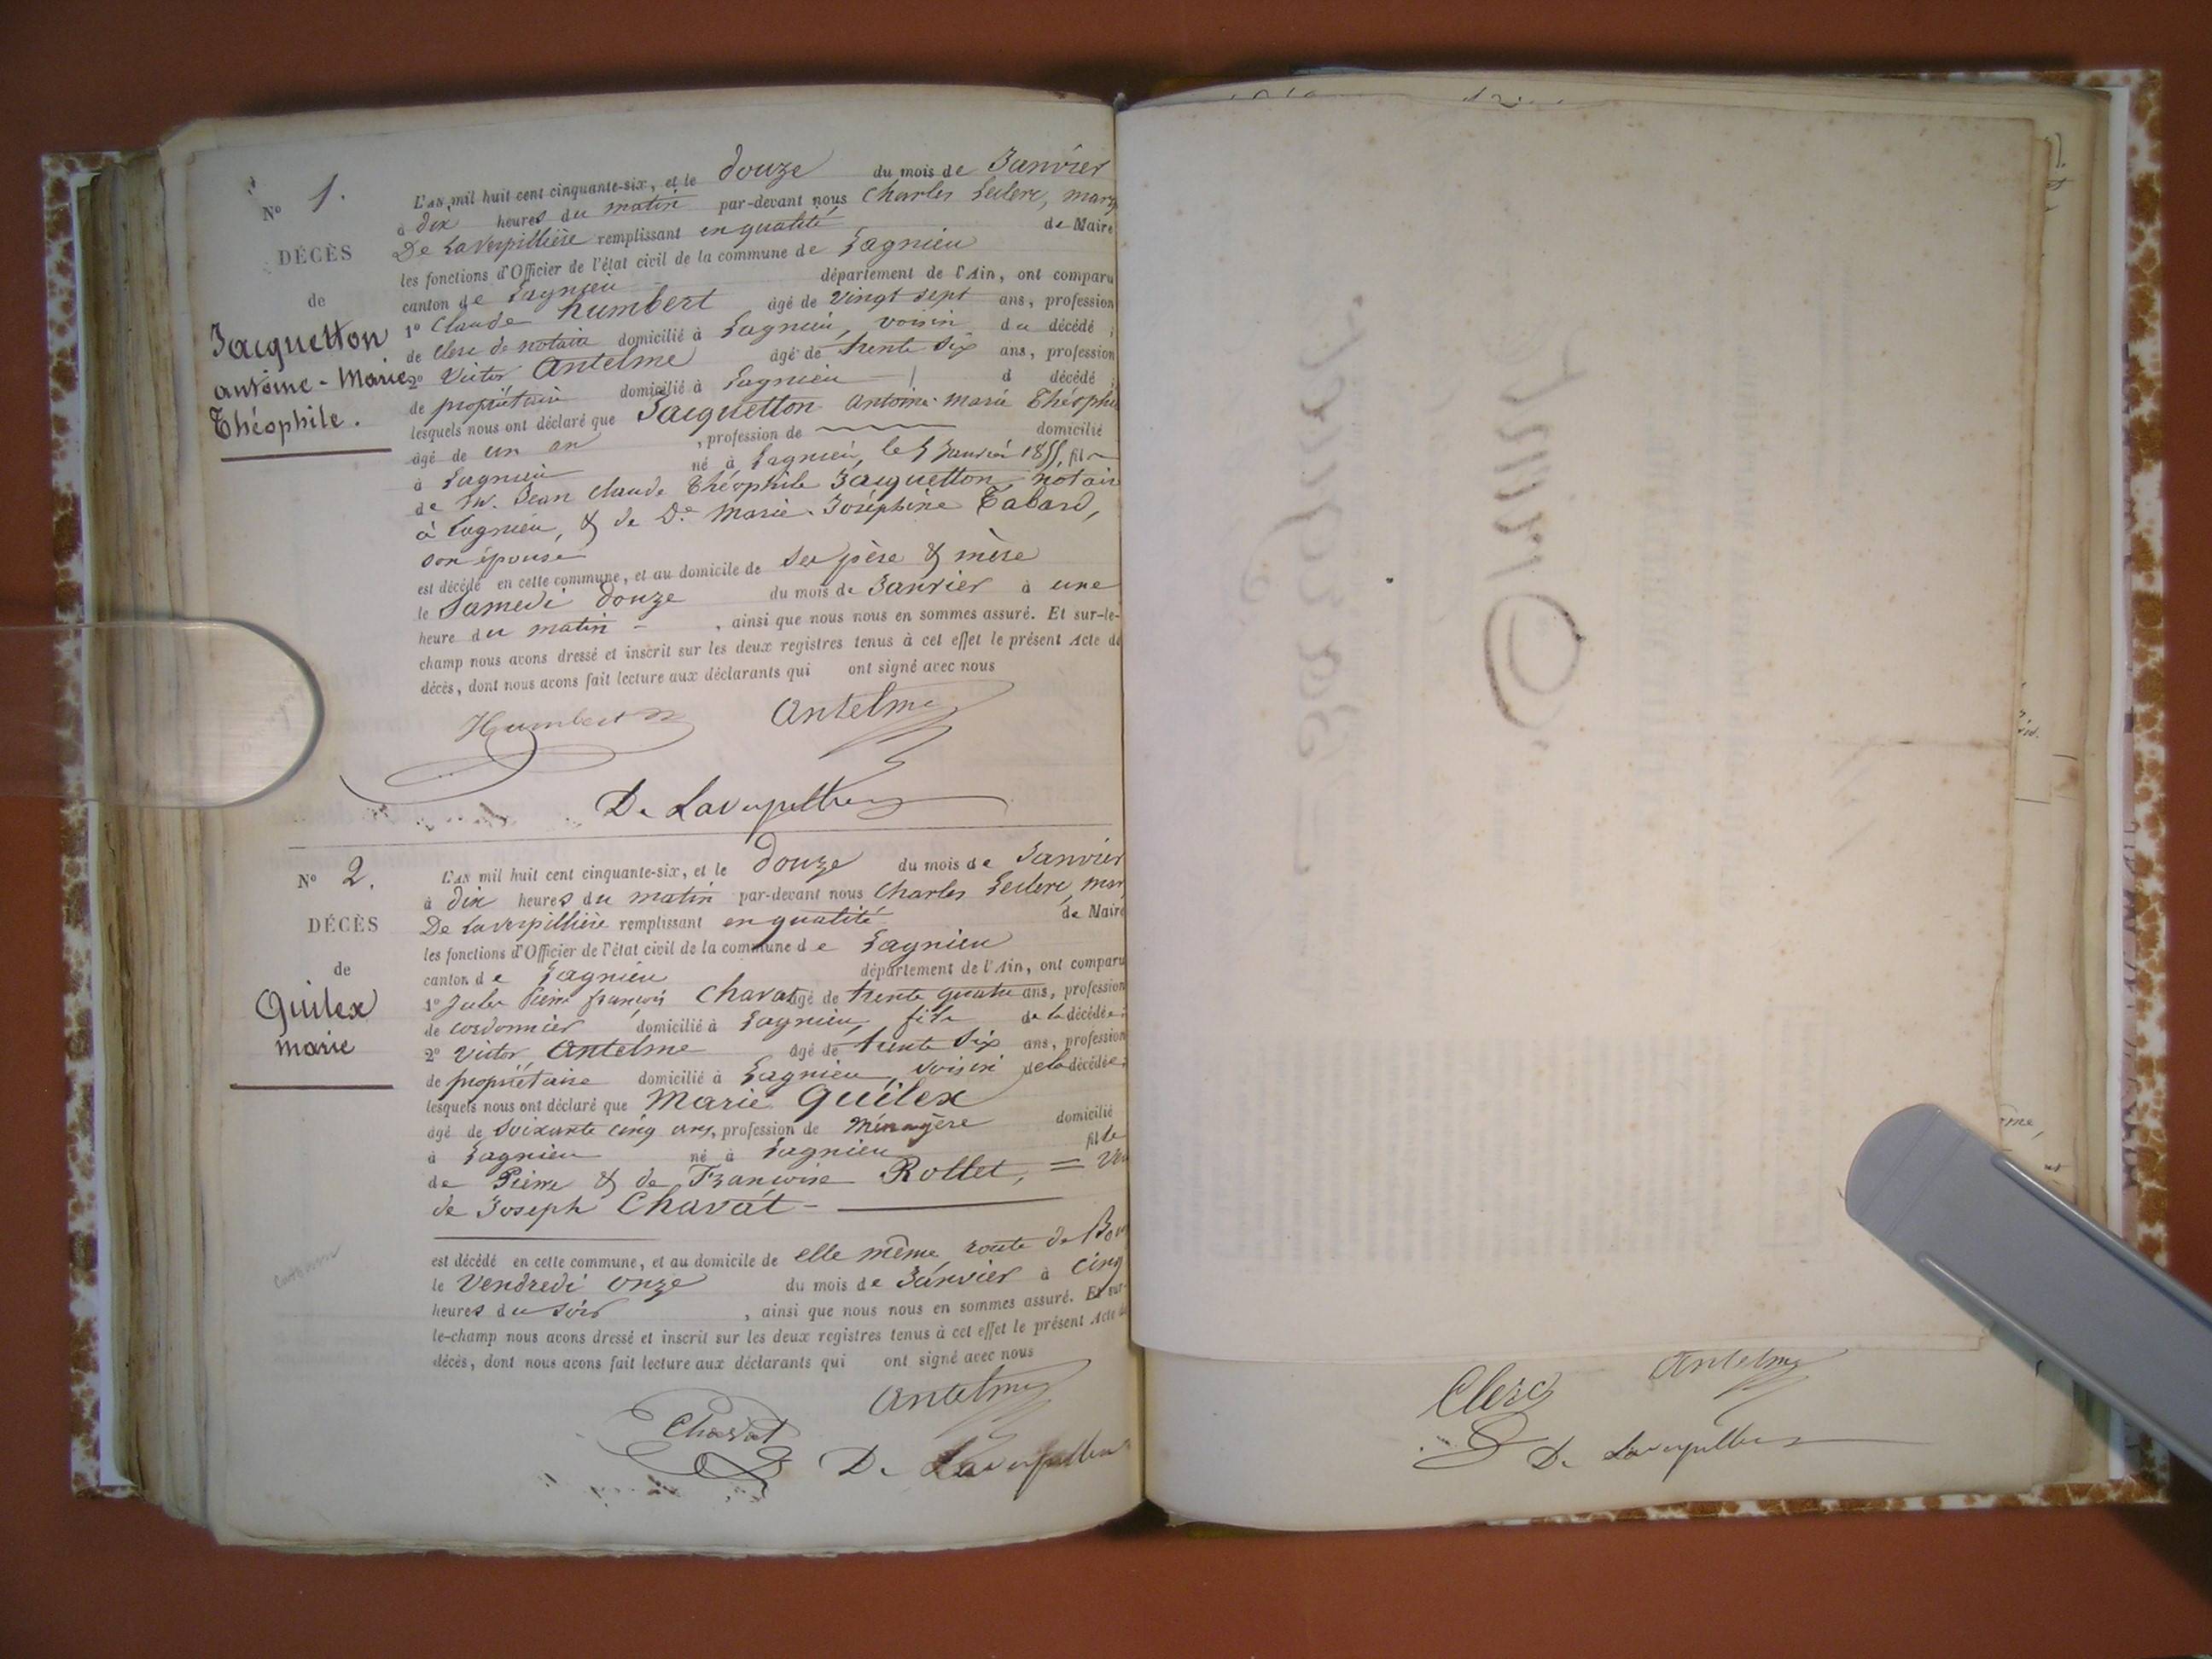 N° 1.
DÉCÈS
de
Jacquetton
antoine-Marie
Théophile.
L'AN mil huit cent cinquante-six, et le douze du mois de Janvier
à dix heures du matin par-devant nous Charles Leclerc, marq
De Laverpillière remplissant en qualité de Maire
les fonctions d'Officier de l'état civil de la commune de Lagnieu
canton de Lagnieu département de l'Ain, ont comparu
1° Claude humbert âgé de vingt sept ans, profession
de clerc de notaire domicilié à Lagnieu, voisin du décédé ;
2° Victor Antelme âgé de trente six ans, profession
de propriétaire domicilié à Lagnieu d décédé ;
lesquels nous ont déclaré que Jacquetton Antoine-marie Théophi
âgé de un an , profession de domicilié
à Lagnieu né à Lagnieu, le 5 Janvier 1855, fils
de Mr. Jean Claude Théophile Jacquetton, notair
à Lagnieu, & de De Marie-Joséphine Tabard,
son épouse
est décédé en cette commune, et au domicile de ses père & mère
le Samedi douze du mois de Janvier à une
heure du matin - , ainsi que nous nous en sommes assuré. Et sur-le-
champ nous avons dressé et inscrit sur les deux registres tenus à cet effet le présent Acte de
décès, dont nous avons fait lecture aux déclarants qui ont signé avec nous
Humbert Antelme
De Laverpilliere
N° 2.
DÉCÈS
de
Quilex
marie
L'AN mil huit cent cinquante-six, et le douze du mois de Janvier
à dix heures du matin par-devant nous Charles Leclerc, mar
De Laverpillière remplissant en qualité de Maire
les fonctions d'Officier de l'état civil de la commune de Lagnieu
canton de Lagnieu département de l'Ain, ont comparu
1° Jules Pierre françois Chavat âgé de trente quatre ans, profession
de cordonnier domicilié à Lagnieu, fils de la décédée ;
2° Victor Antelme âgé de trente six ans, profession
de propriétaire domicilié à Lagnieu, voisin de la décédée ;
lesquels nous ont déclaré que Marie Quilex
âgé de soixante cinq ans, profession de Ménagère domicilié
à Lagnieu né à Lagnieu fille
de Pierre & de Françoise Rollet, = veu
de Joseph Chavat -
est décédé en cette commune, et au domicile de elle même, route de Bou
le Vendredi onze du mois de Janvier à cinq
heures du soir , ainsi que nous nous en sommes assuré. Et sur-
le-champ nous avons dressé et inscrit sur les deux registres tenus à cet effet le présent Acte de
décès, dont nous avons fait lecture aux déclarants qui ont signé avec nous
Antelme
Chavat
De Laverpilliere
Clerc Antelme
De Laverpilliere